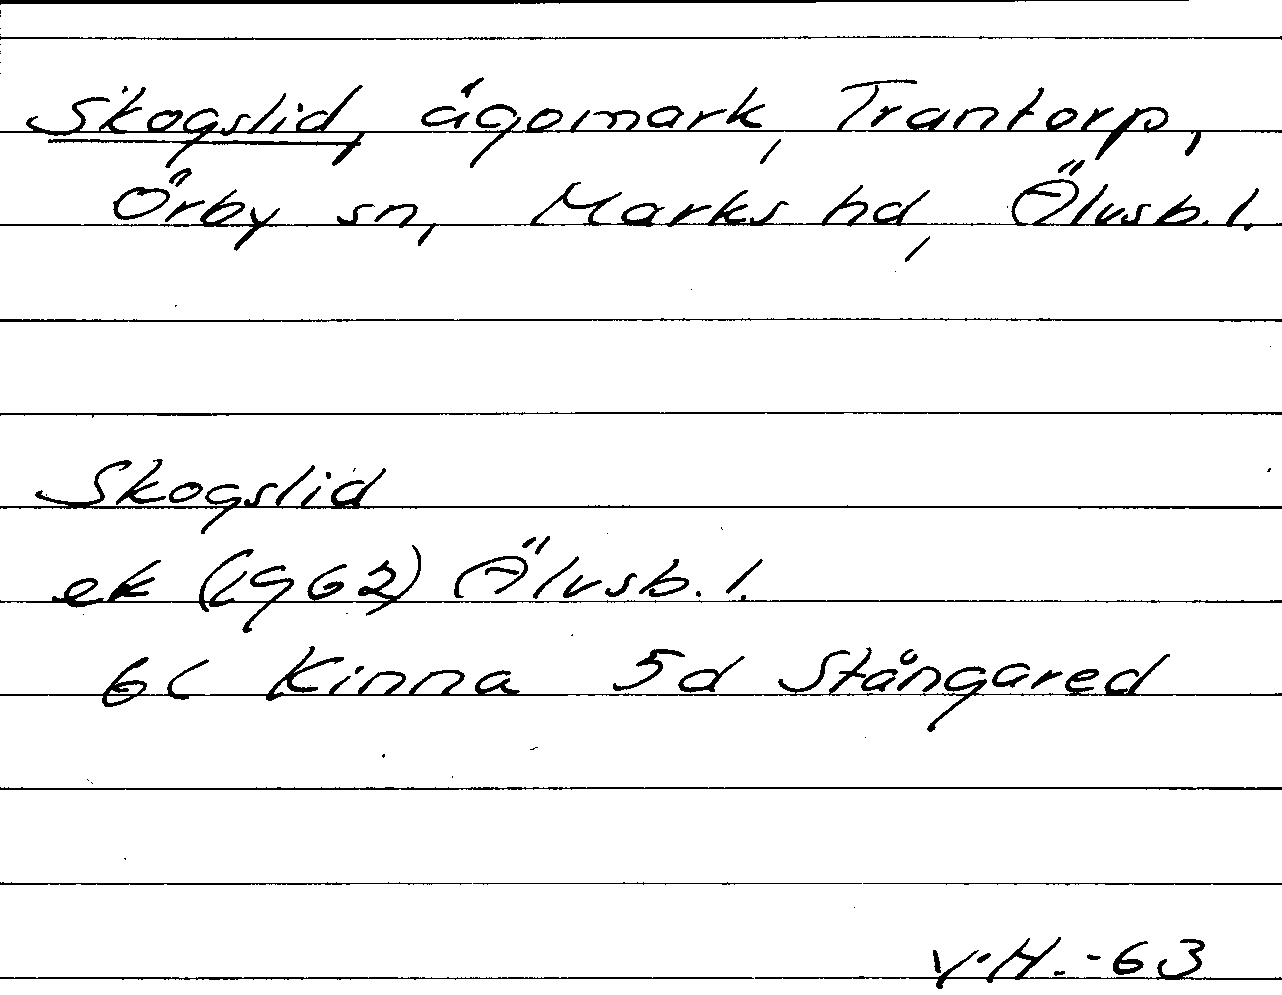 Skogslid, ägomark, Trantorp,
Örby sn, Marks hd, Älvsb.l.
Skogslid
ek (1962) Älvsb.l.
6C Kinna 5d Stångared
V.H.-63